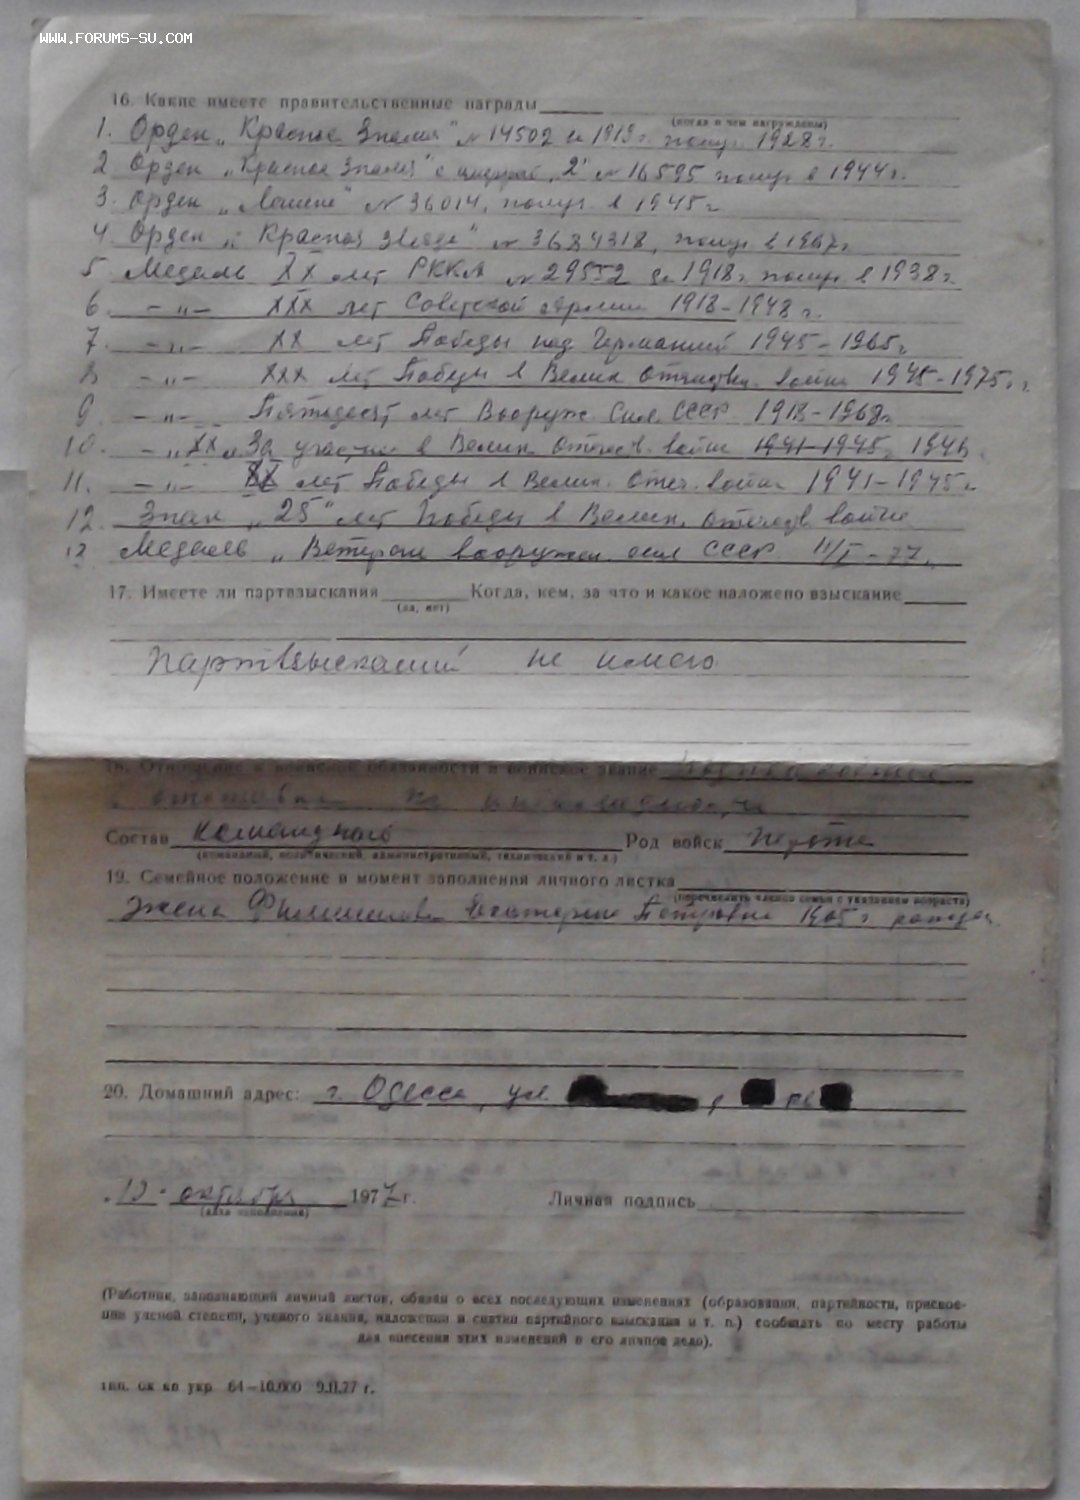 WWW.FORUMS-SU.COM
16. Какие имеете правительственные награды
(когда и чем награждены)
1. Орден „Красное Знамя" № 14502 за 1919 г. получ. 1928 г.
2 Орден „Красное Знамя" с цифрой „2" № 16595 получ в 1944 г.
3. Орден „Ленина" № 36014, получ. в 1945 г
4. Орден „Красная звезда" № 3684318, получ в 1967 г
5. Медаль XX лет РККА № 29552 за 1918 г. получ в 1938 г.
6. -„- XXX лет Советской Армии 1918-1948 г.
7. -„- XX лет Победы над Германией 1945-1965 г.
8 -„- XXX лет Победы в Велик Отечествен. войне 1945-1975 г.
9 -„- Пятьдесят лет Вооруж Сил СССР 1918-1968 г
10. -„- За участие в Велик Отечеств. войне 1941-1945 1946
11. -„- XX лет Победы в Велик. Отеч. войне 1941-1945 г.
12. Знак „25" лет Победы в Велик. Отечеств войне
13 Медаль „Ветеран вооружен сил СССР. 11/I-77.
17. Имеете ли партвзыскания Когда, кем, за что и какое наложено взыскание
(да, нет)
партвзысканий не имею
18. Отношение к воинской обязанности и воинское звание
в отставке по
Состав командного Род войск пехота
(командный, политический, административный, технический и т. д.)
19. Семейное положение в момент заполнения личного листка
(перечислить членов семьи с указанием возраста)
Жена Екатерина Петровна 1905 г рожден
20. Домашний адрес: г. Одесса, ул. , кв
октября 1977 г. Личная подпись
(дата заполнения)
(Работник, заполняющий личный листок, обязан о всех последующих изменениях (образовании, партийности, присвое-
нии ученой степени, ученого звания, наложении и снятии партийного взыскания и т. п.) сообщать по месту работы
для внесения этих изменений в его личное дело).
тип. ок кп укр 64—10.000 9.II.77 г.